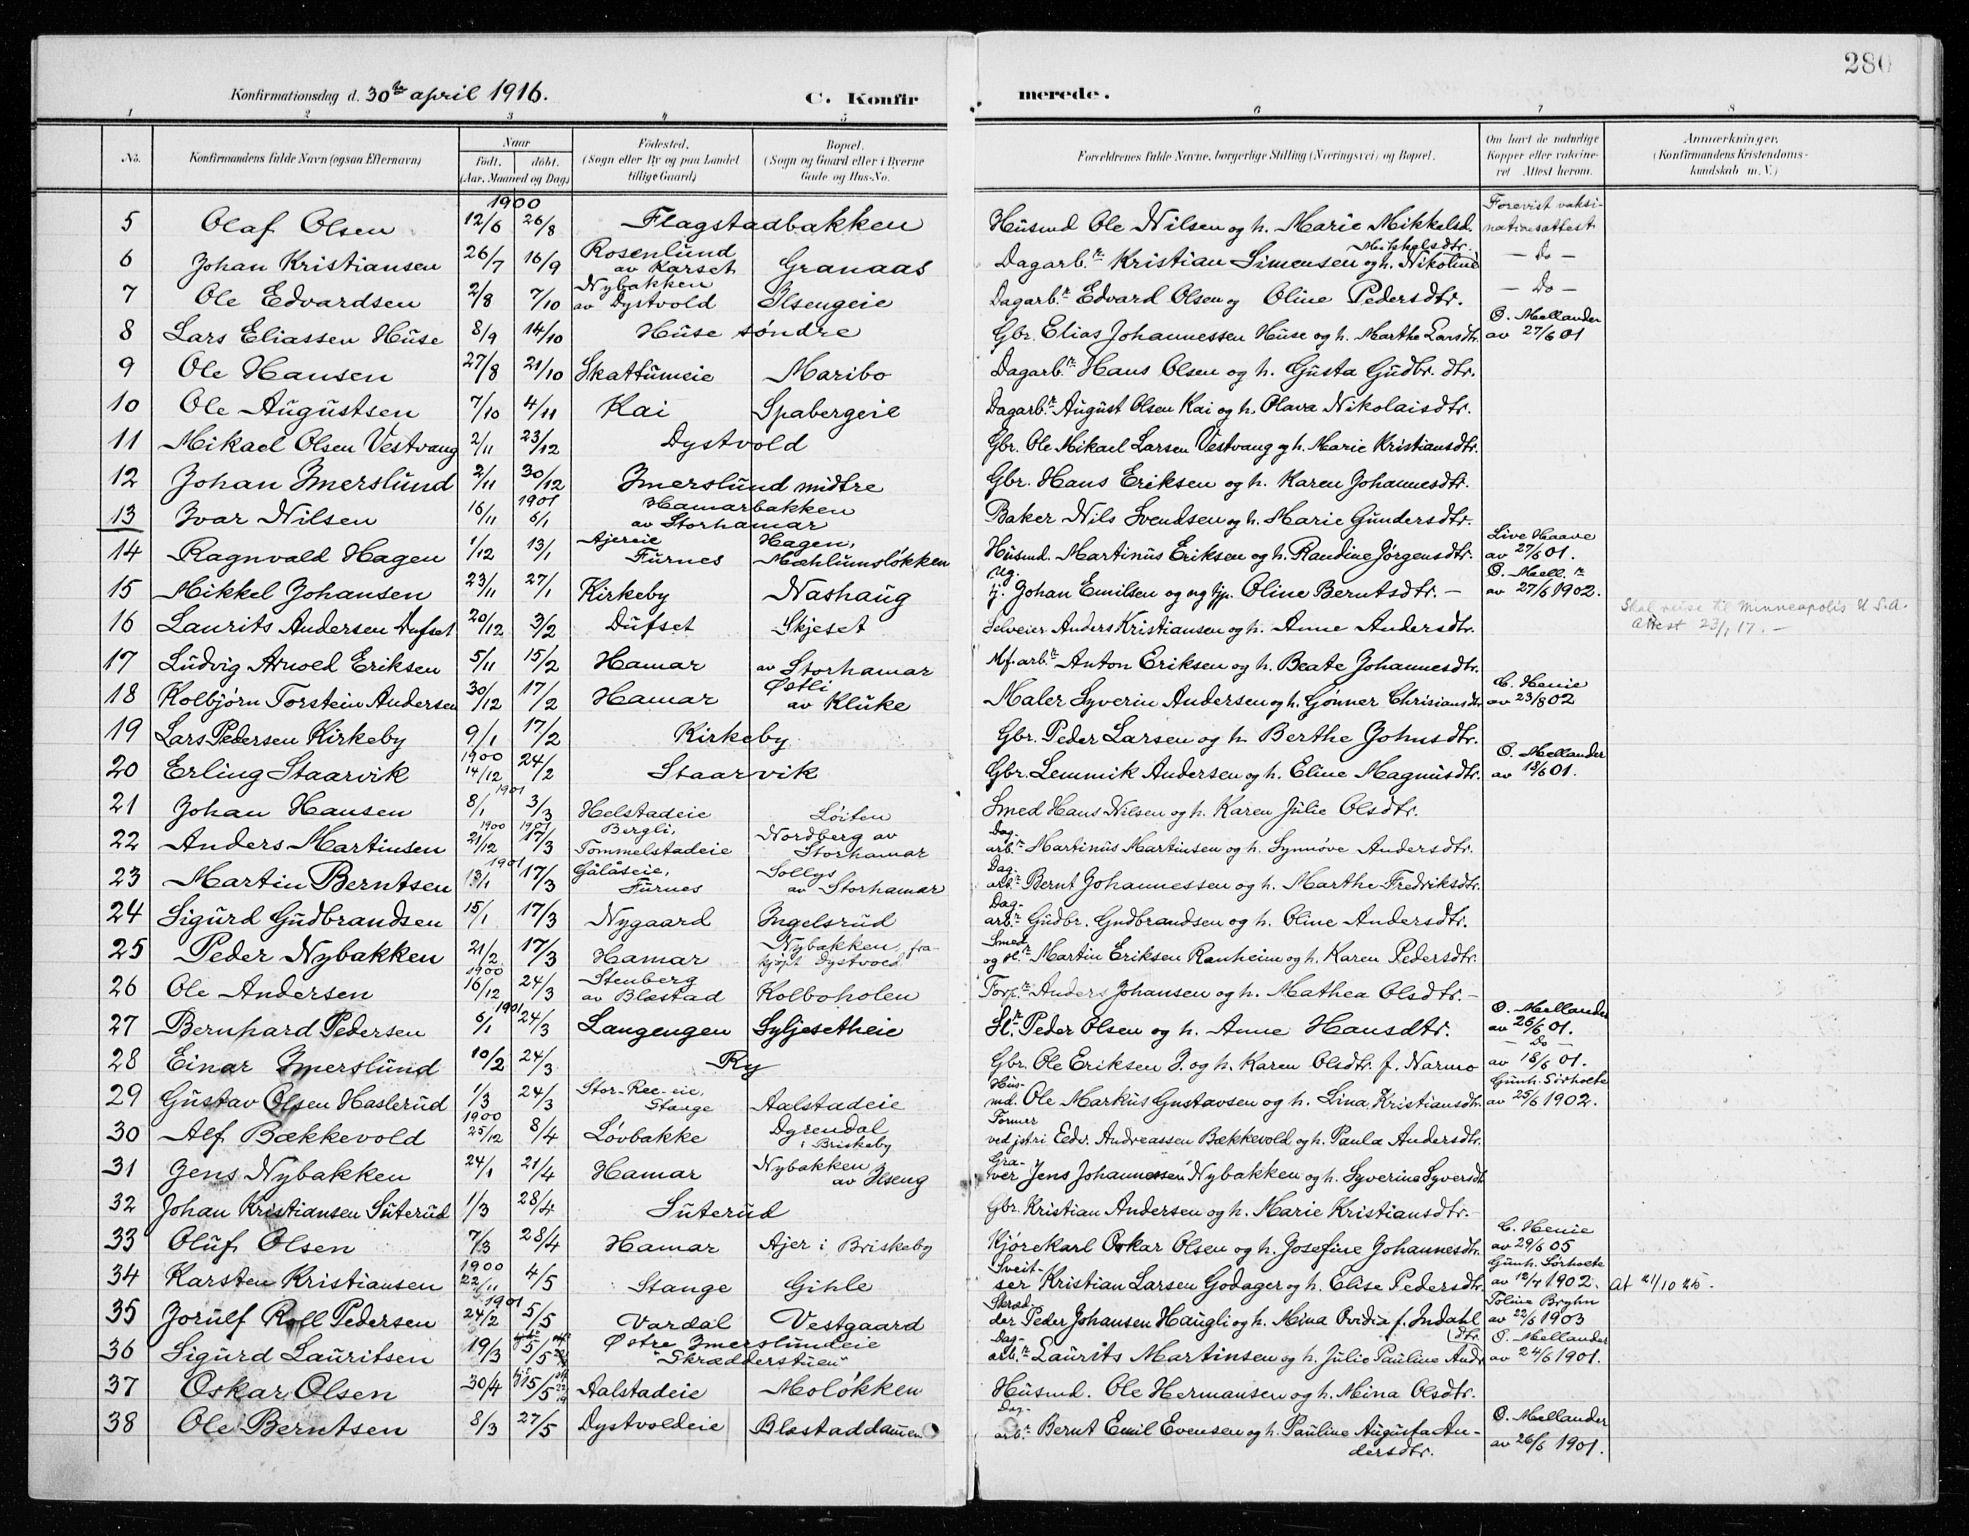 280
Konfirmationsdag d. 30te april 1916.
C. Konfirmerede.
1 2 3 4 5 6 7 8
No. Konfirmandens fulde Navn (ogsaa Efternavn) Naar født. døbt. (Aar, Maaned og Dag) Fødested. (Sogn eller By og paa Landet tillige Gaard) Bopæl. (Sogn og Gaard eller i Byerne Gade og Hus-No. Forældrenes fulde Navne, borgerlige Stilling (Næringsvei) og Bopæl. Om havt de naturlige Kopper eller vaksineret Attest herom. Anmærkninger. (Konfirmandens Kristendomskundskab m. V.)
1900
5 Olaf Olsen 12/6 26/8 Flagstadbakken Husmd Ole Nilsen og h. Marie Mikkelsd. Forevist vaksinationsattest
6 Johan Kristiansen 26/7 16/9 Rosenlund av Karset Granaas Dagarb.r Kristian Simensen og h. Nikoline Mikkelsdtr. — Do —
7 Ole Edvardsen 2/8 7/10 Nybakken av Dystvold Ilsengeie Dagarb.r Edvard Olsen og Oline Pedersdtr. — Do —
8 Lars Eliassen Huse 8/9 14/10 Huse søndre Gbr. Elias Johannessen Huse og h. Marthe Larsdtr. O. Mellander av 27/6 01
9 Ole Hansen 27/8 21/10 Skattumeie Maribo Dagarb.r Hans Olsen og h. Gusta Gudbr. dtr.
10 Ole Augustsen 7/10 4/11 Kai Spabergeie Dagarb.r August Olsen Kai og h. Olava Nikolaisdtr.
11 Mikael Olsen Vestvang 2/11 23/12 Dystvold Gbr. Ole Mikael Larsen Vestvang og h. Marie Kristiansdtr.
12 Johan Imerslund 2/11 30/12 Imerslund midtre Gbr. Hans Eriksen og h. Karen Johannesdtr.
13 Ivar Nilsen 16/11 1901 6/1 Hamarbakken av Storhamar Baker Nils Svendsen og h. Marie Gundersdtr.
14 Ragnvald Hagen 1/12 13/1 Ajereie Furnes Hagen, Mæhlumsløkken Husmd. Martinus Eriksen og h. Randine Jørgensdtr. Live Haave av 27/6 01.
15 Mikkel Johansen 23/11 27/1 Kirkeby Nashaug Ug. Johan Emilsen og ug Oline Berntsdtr. — O. Mell. r av 27/6 1902.
16 Laurits Andersen Dufset 20/12 3/2 Dufset Skjeset Selveier Anders Kristiansen og h. Anne Andersdtr. Skal reise til Minneapolis U.S.A. Attest 23/1 17. —
17 Ludvig Arnold Eriksen 5/11 15/2 Hamar av Storhamar Mf. arb.r Anton Eriksen og h. Beate Johannesdtr.
18 Kolbjørn Torstein Andersen 30/12 17/2 Hamar Østli av Kluke Maler Syverin Andersen og h. Gønner Chrisiansdtr C. Henie av 23/8 02
19 Lars Pedersen Kirkeby 9/1 17/2 Kirkeby Gbr. Peder Larsen og h. Berthe Johnsdtr.
20 Erling Staarvik 1900 14/12 24/2 Staarvik Gbr. Lemmik Andersen og h. Eline Magnusdtr. O. Mellander av 18/6 01.
21 Johan Hansen 1901 8/1 3/3 Helstadeie Løiten Smed Hans Nilsen og h. Karen Julie Olsdtr.
22 Anders Martinsen 1900 21/12 1901 17/3 Bergli, Tommelstadeie Nordberg av Storhamar Dagarb.r Martinus Martinsen og h. Synnøve Andersdtr.
23 Martin Berntsen 1901 13/1 17/3 Gålåseie, Furnes Sollys av Storhamar Dagarb.r Bernt Johannessen og h. Marthe Fredriksdtr.
24 Sigurd Gudbrandsen 15/1 17/3 Nygaard Ingelsrud Dagarb.r Gudbr. Gudbrandsen og h. Oline Andersdtr.
25 Peder Nybakken 21/2 17/3 Hamar Nybakken, frakjøpt Dystvold Smed og sl.r Martin Eriksen Ranheim og h. Karen Pedersdtr.
26 Ole Andersen 1900 16/12 24/3 Stenberg av Blæstad Kolboholen Forp.r Anders Johansen og h. Mathea Olsdtr. —
27 Bernhard Pedersen 1901 6/1 24/3 Langengen Syljesetheie Sl.r Peder Olsen og h. Anne Hansdtr. O. Mellander av 26/6 01.
28 Einar Imerslund 10/2 24/3 Ry Gbr. Ole Eriksen I. og h. Karen Olsdtr. f. Narmo — Do — av 18/6 01.
29 Gustav Olsen Haslerud 1/3 24/3 Stor-Ree-eie, Stange Aalstadeie Husmd. Ole Markus Gustavsen og h. Lina Kristiansdtr. Gunh. Sørholte av 25/6 1902.
30 Alf Bækkevold 1900 25/12 8/4 Løvbakke Dyrendal i Briskeby Former ved jstri Edv. Andreassen Bækkevold og h. Paula Andersdtr.
31 Jens Nybakken 24/1 21/4 Hamar Nybakken av Ilseng Graver Jens Johannessen Nybakken og h. Syverine Syversdt
32 Johan Kristiansen Suterud 1/3 28/4 Suterud Gbr. Kristian Andersen og h. Marie Kristiansdtr.
33 Oluf Olsen 7/3 28/4 Hamar Ajer i Briskeby Kjørekarl Oskar Olsen og h. Josefine Johannesdtr. C. Henie av 29/6 05
34 Karsten Kristiansen 1900 22/11 4/5 Stange Gihle Sveitser Kristian Larsen Godager og h. Elise Pedersdtr Gunh. Sørholte av 12/7 1902. At 21/10 25.
35 Jorulf Roll Pedersen 1901 24/2 5/5 Vardal Vestgaard Skrædder Peder Johansen Haugli og h. Mina Ovidia f. Indahl Toline Bryhn av 22/6 1903
36 Sigurd Lauritsen 19/3 5/5 Østre Imerslundeie "Skrædderstuen" Dagarb.r Laurits Martinsen og h. Julie Pauline Andr dtr. O. Mellander av 24/6 1901.
37 Oskar Olsen 30/4 15/5 Aalstadeie Moløkken Husmd. Ole Hermansen og h. Mina Olsdtr.
38 Ole Berntsen 8/3 27/5 Dystvoldeie Blæstaddammen Dagarb.r Bernt Emil Evensen og h. Pauline Augusta Andersdtr. O. Mellander av 26/6 1901.